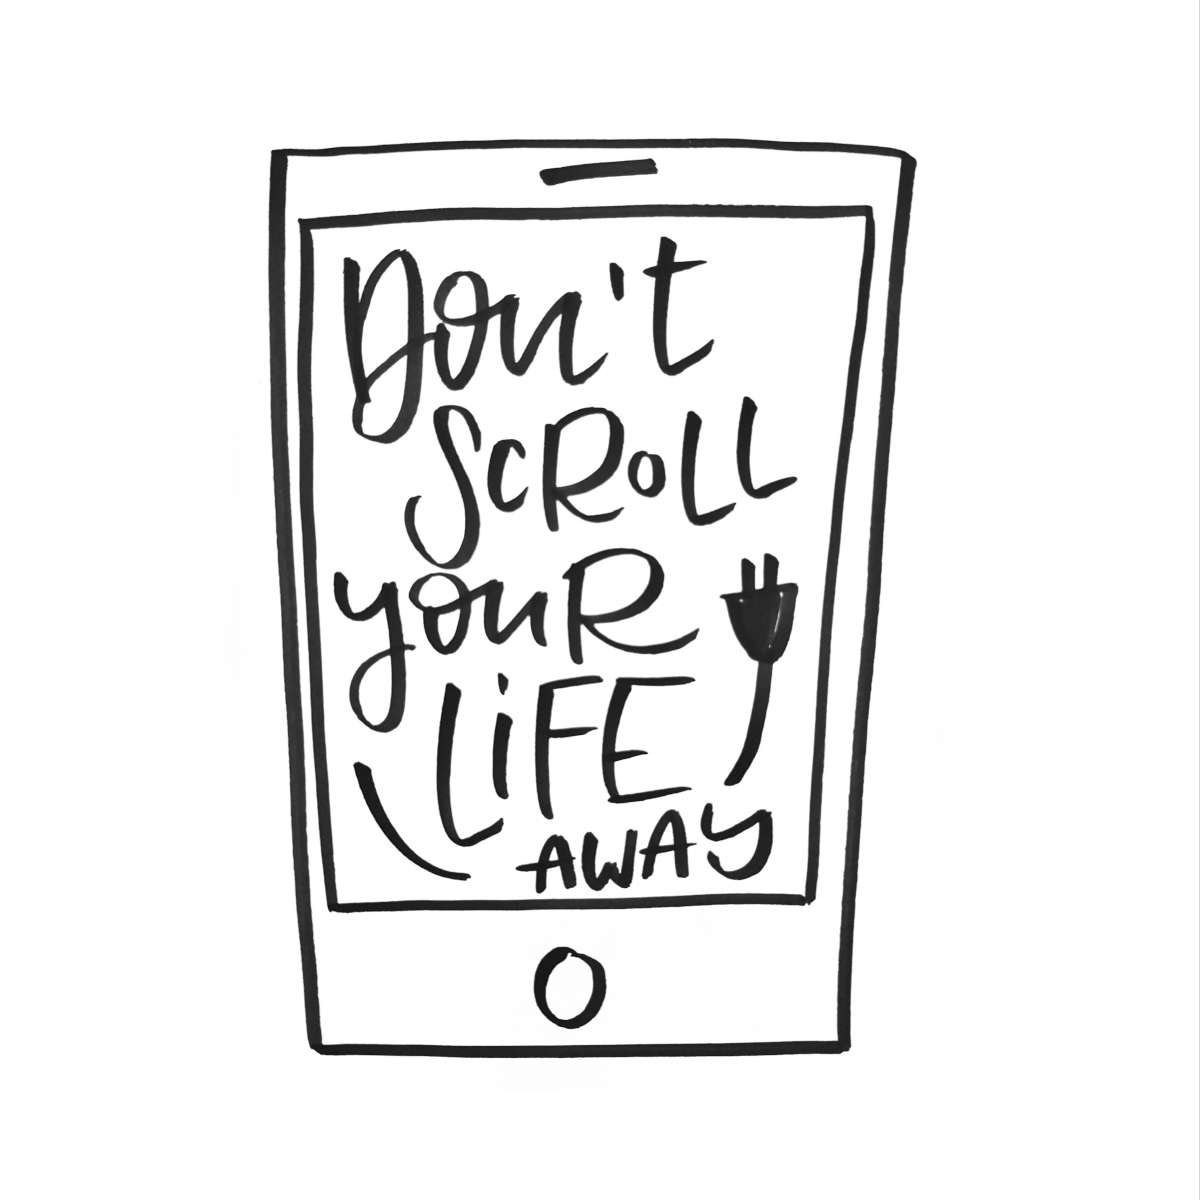 Don't
SCROLL
youR
LiFE
AWAY